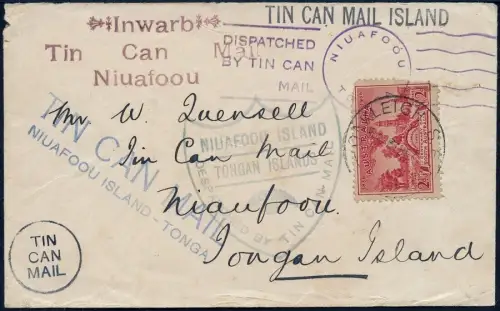 Inwarb
Tin Can Mail
Niuafoou
TIN CAN MAIL ISLAND
DISPATCHED
BY TIN CAN
MAIL
NIUAFOÓU
Mr W. Quensell
Tin Can Mail
Niuafoou.
Tongan Island
TIN CAN MAIL
NIUAFOOU ISLAND - TONGA
NIUAFOOU ISLAND
TONGAN ISLANDS
BY TIN CAN MAIL
TIN
CAN
MAIL
OAKLEIGH
2
2